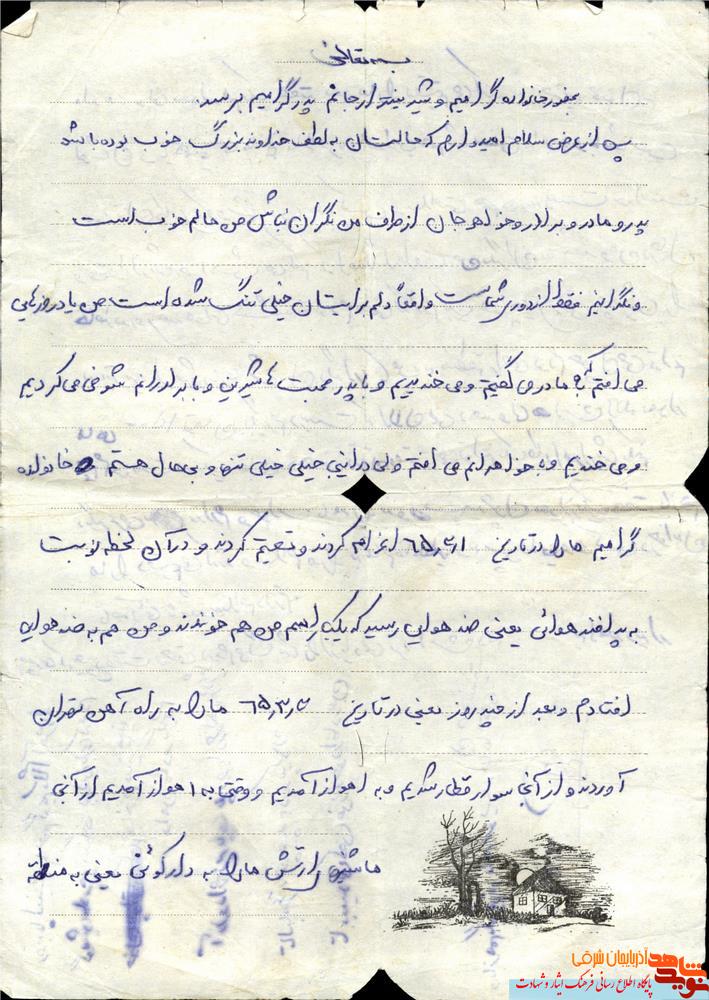 بسمه تعالی
بحضور خانواده گرامیم و شیرینتر از جانم پدر گرامیم برسد
پس از عرض سلام امیدوارم که حالتان به لطف خداوند بزرگ خوب بوده باشد
پدر و مادر و برادر و خواهر جان از طرف من نگران نباش من حالم خوب است
و نگرانیم فقط از دوری شماست واقعاً دلم برایتان خیلی تنگ شده است من یاد روزهایی
می افتم که با مادر می گفتیم و می خندیدیم و با پدر صحبت ها شیرین و با برادرانم شوخی می کردیم
و می خندیدیم و به خواهرانم می افتم ولی در اینجا خیلی خیلی تنها و بی حال هستم خانواده
گرامیم ما را در تاریخ ۶۵٫۳٫۱ اعزام کردند و تقسیم کردند و در آن لحظه نوبت
به پدافند هوائی یعنی ضد هوایی رسید که یکباره اسم من هم خوندند و من هم به ضد هوایی
افتادم و بعد از چند روز یعنی در تاریخ ۶۵٫۳٫۳ ما را به راه آهن تهران
آوردند و از آنجا سوار قطار شدیم و به اهواز آمدیم و وقتی به اهواز آمدیم از آنجا
ماشین ارتش ما را به دارکوئی یعنی به منطقه
نوید شاهد آذربایجان شرقی
پایگاه اطلاع رسانی فرهنگ ایثار و شهادت